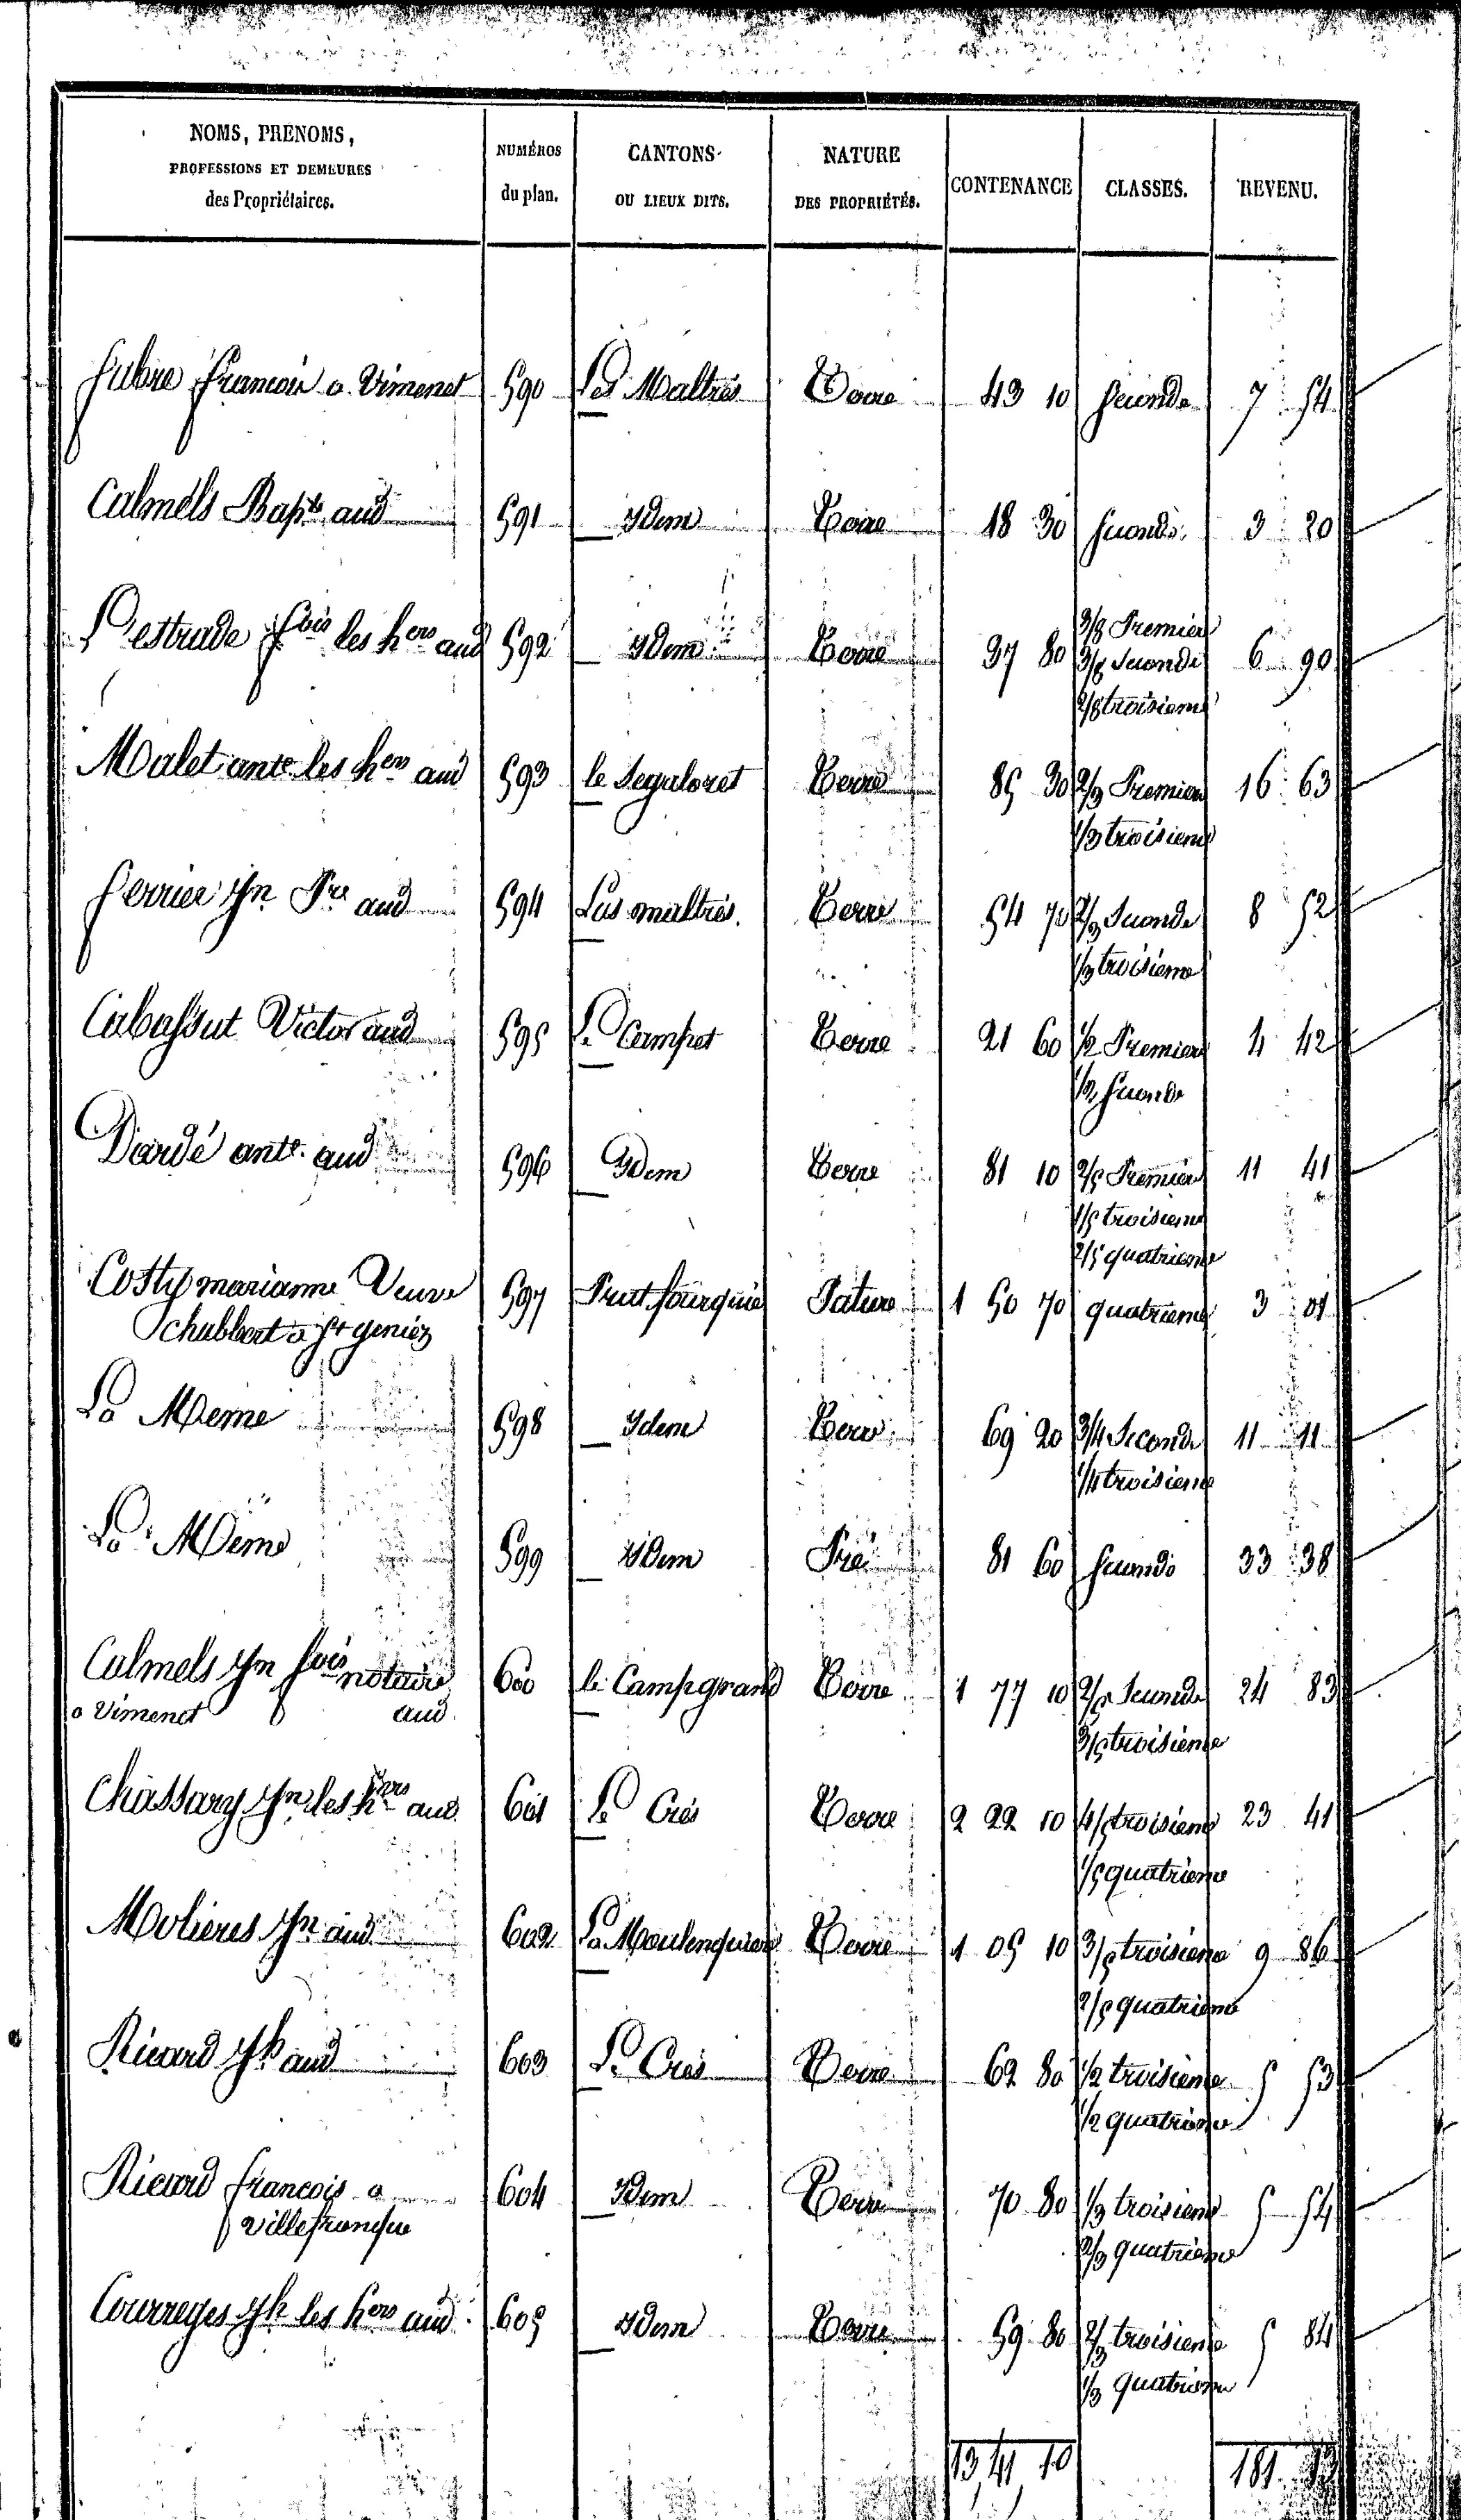 NOMS, PRÉNOMS, PROFESSIONS ET DEMEURES des Propriétaires. NUMÉROS du plan. CANTONS OU LIEUX DITS. NATURE DES PROPRIÉTÉS. CONTENANCE CLASSES. REVENU.
Fabre François a Vimenet 590 Les Maltrés Terre 43 10 Seconde 7 54
Calmels Bapte aud 591 Idem Terre 18 30 Seconde 3 20
Lestrade fois les hers aud 592 Idem Terre 37 80 3/8 Premiere 6 90
3/8 Seconde
2/8 troisieme
Malet ante les hers aud 593 le Segaloret Terre 85 30 2/3 Premiere 16 63
1/3 troisieme
Ferrier Jn Pre aud 594 Las maltres Terre 54 70 2/3 Seconde 8 52
1/3 troisieme
Cabassut Victor aud 595 Le Campet Terre 21 60 1/2 Premiere 4 42
1/2 Seconde
Dardé ante aud 596 Idem Terre 81 10 2/5 Premiere 11 41
1/5 troisieme
2/5 quatrieme
Costy marianne Veuve 597 Prat fourquié Pature 1 50 70 quatrieme 3 01
Schubbert a St geniez
La Meme 598 Idem Terre 69 20 3/4 Seconde 11 11
1/4 troisieme
La Meme 599 Idem Pré 81 60 Seconde 33 38
Calmels Jn fois notaire 600 le Campgrand Terre 1 77 10 2/5 Seconde 24 83
a Vimenet aud 3/5 troisieme
Chassary Jn les hers aud 601 Le Crés Terre 2 22 10 4/5 troisieme 23 41
1/5 quatrieme
Molieres Jn aud 602 La Moulenquiere Terre 1 05 10 3/5 troisieme 9 86
2/5 quatrieme
Ricard Jh aud 603 Le Crés Terre 62 80 1/2 troisieme 5 53
1/2 quatrieme
Ricard francois a 604 Idem Terre 70 80 1/3 troisieme 5 54
villefranque 2/3 quatrieme
Courreges Jh les hers aud 605 Idem Terre 59 80 2/3 troisieme 5 84
1/3 quatrieme
13,41,10 181.13